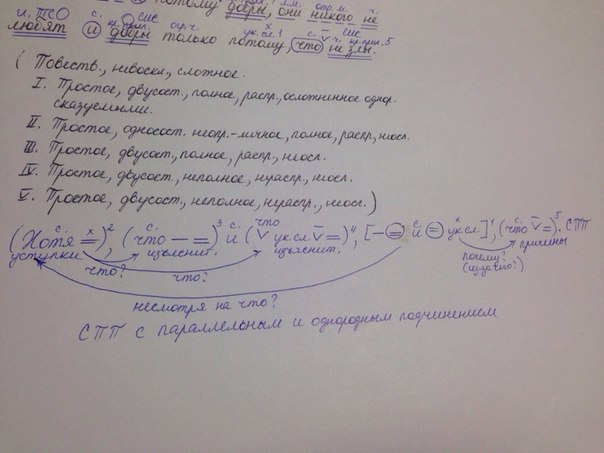 потому добры, они никого не
и. ТСО с. кр.прил. СИС огр.ч. х ук.сл. 1 с. V ч. СИС кр.прил. 5
любят и добры только потому, что не злы.
( Повеств., невоскл., сложное.
I. Простое, двусост., полное, распр., осложненное однор.
сказуемыми.
II. Простое, односост. неопр.-личное, полное, распр., неосл.
III. Простое, двусост., полное, распр., неосл.
IV. Простое, двусост., неполное, нераспр., неосл.
V. Простое, двусост., неполное, нераспр., неосл. )
с. х с. что с. х с.
(Хотя =)², (что – =)³ и (V ук.сл. V =)⁴, [– = и = ук.сл.]¹, (что V =)⁵. СПП
уступки изъяснит. изъяснит. причины
что? что? почему?
(из-за чего?)
несмотря на что?
СПП с параллельным и однородным подчинением